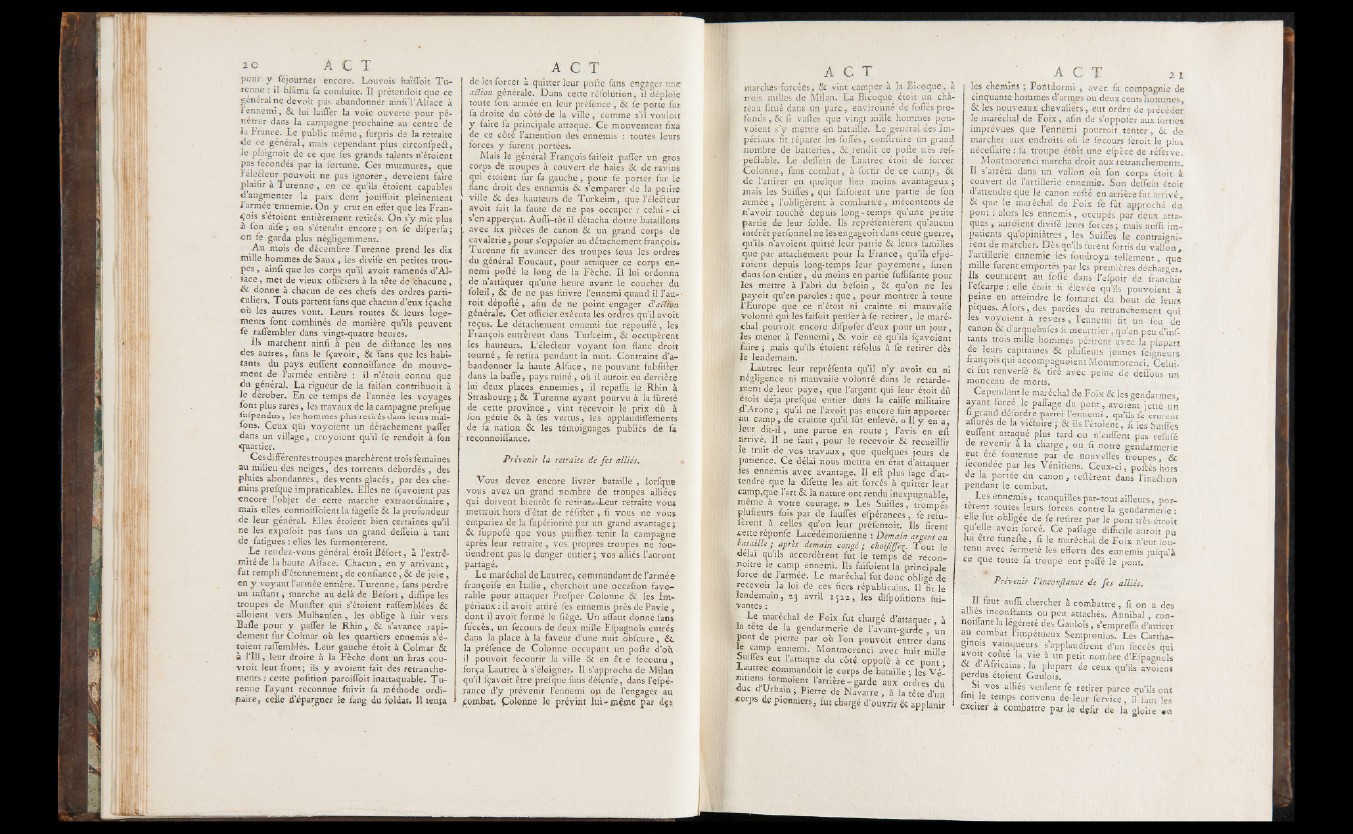 20 A C T
pour y séjourner encore. Louvois haïssoit Tu-
renne : il blâma sa conduite. Il prétendoit que ce
général ne devoit pas abandonner ainsi l'Alsace à
l'ennemi, & lui laisser la voie ouverte pour pé-
nétrer dans la campagne prochaine au centre de
la France. Le public même, surpris de la retraite
de ce général, mais cependant plus circonspect,
le plaignoit de ce que ses grands talents n'étoient
pas secondés par la fortune. Ces murmures, que
l'électeur pouvoit ne pas ignorer, devoient faire
plaisir à Turenne, en ce qu'ils étoient capables
d'augmenter la paix dont jouissoit pleinement
l'armée ennemie. On y crut en effet que les Fran-
çois s'étoient entièrement retirés. On s'y mit plus
à son aise ; on s'étendit encore ; on se dispersa ;
on se garda plus négligemment.
Au mois de décembre Turenne prend les dix
mille hommes de Saux, les divise en petites trou-
pes, ainsi que les corps qu'il avoit ramenés d'Al-
sace, met de vieux officiers à la tête de chacune,
& donne à chacun de ces chefs des ordres parti-
culiers. Tous partent sans que chacun d'eux sçache
où les autres vont. Leurs routes & leurs loge-
ments sont combinés de manière qu'ils peuvent
se rassembler dans vingt-quatre heures.
Ils marchent ainsi à peu de distance les uns
des autres, sans le sçavoir, & sans que les habi-
tants du pays eussent connoissance du mouve-
ment de l'armée entière : il n'étoit connu que
du général. La rigueur de la saison contribuoit à
le dérober. En ce temps de l'année les voyages
sont plus rares, les travaux de la campagne presque
suspendus, les hommes plus resserrés dans leurs mai-
sons. Ceux qui voyoient un détachement passer
dans un village, croyoient qu'il se rendoit à son
quartier.
Ces différentes troupes marchèrent trois semaines
au milieu des neiges, des torrents débordés, des
pluies abondantes, des vents glacés, par des che-
mins presque impraticables. Elles ne sçavoient pas
encore l'objet de cette marche extraordinaire,
mais elles connoissoient la sagesse & la profondeur
de leur général. Elles étoient bien certaines qu'il
ne les exposoit pas sans un grand dessein à tant
de fatigues : elles les surmontèrent.
Le rendez-vous général étoit Béfort, à l'extré-
mité de la haute Alsace. Chacun, en y arrivant,
fut rempli d'étonnement, de confiance, & de joie,
en y voyant l'armée entière. Turenne, sans perdre
un instant, marche au delà de Béfort, dissipe les
troupes de Munster qui s'étoient rassemblées &
alloient vers Mulhausen, les oblige à fuir vers
Basle pour y passer le Rhin, & s'avance rapi-
dement sur Colmar où les quartiers ennemis s'é-
toient rassemblés. Leur gauche étoit à Colmar &
à l'Ill, leur droite à la Fèche dont un bras cou-
vroit leur front ; ils y avoient fait des retranche-
ments : cette position paroissoit inattaquable. Tu-
renne l'ayant reconnue suivit sa méthode ordi-
naire, celle d'épargner le sang du soldat. Il tenta
A C T
de les forcer à quitter leur poste sans engager une
action générale. Dans cette résolution, il déploie
toute son armée en leur présence, & se porte sur
sa droite du côté de la ville, comme s'il vouloit
y faire sa principale attaque. Ce mouvement fixa
de ce côté l'attention des ennemis : toutes leurs
forces y furent portées.
Mais le général François faisoit passer un gros
corps de troupes à couvert de haies & de ravins
qui étoient sur sa gauche, pour se porter sur le
flanc droit des ennemis & s'emparer de la petite
ville & des hauteurs de Turkeim, que l'électeur
avoit fait la faute de ne pas occuper : celui-ci
s'en apperçut. Aussi-tôt il détacha douze bataillons
avec six pièces de canon & un grand corps de
cavalerie, pour s'opposer au détachement françois.
Turenne fit avancer des troupes sous les ordres
du général Foucaut, pour attaquer ce corps en-
nemi posté le long de la Fèche. Il lui ordonna
de n'attaquer qu'une heure avant le coucher du
soleil, & de ne pas suivre l'ennemi quand il l'au-
roit déposté, afin de ne point engager d'action
générale. Cet officier exécuta les ordres qu'il avoit
reçus. Le détachement ennemi fut repoussé, les
François entrèrent dans Turkeim, & occupèrent
les hauteurs. L'électeur voyant son flanc droit
tourné, se retira pendant la nuit. Contraint d'a-
bandonner la haute Alsace, ne pouvant subsister
dans la basse, pays ruiné, où il auroit eu derrière
lui deux places ennemies, il repassa le Rhin à
Strasbourg ; & Turenne ayant pourvu à la sûreté
de cette province, vint recevoir le prix dû à
son génie & à ses vertus, les applaudissements
de sa nation & les témoignages publics de sa
reconnoissance.
Prévenir la retraite de ses alliés.
Vous devez encore livrer bataille, lorsque
vous avez un grand nombre de troupes alliées
qui doivent bientôt se retirer. Leur retraite vous
mettroit hors d'état de résister, si vous ne vous
empariez de la supériorité par un grand avantage ;
& supposé que vous puissiez tenir la campagne
après leur retraite, vos propres troupes ne sou-
tiendront pas le danger entier ; vos alliés l'auront
partagé.
Le maréchal de Lautrec, commandant de l'armée
françoise en Italie, cherchoit une occasion favo-
rable pour attaquer Prosper Colonne & les Im-
périaux : il avoit attiré ses ennemis près de Pavie,
dont il avoit formé le siège. Un assaut donné sans
succès, un secours de deux mille Espagnols entrés
dans la place à la faveur d'une nuit obscure, &
la présence de Colonne occupant un poste d'où
il pouvoit secourir la ville & en être secouru,
força Lautrec à s'éloigner. Il s'approcha de Milan
qu'il sçavoit être presque sans défense, dans l'espé-
rance d'y prévenir l'ennemi ou de l'engager au
combat. Colonne le prévint lui-même par des
A C T
marches forcées, & vint camper à la Bicoque, à
trois milles de Milan. La Bicoque étoit un châ-
teau situé dans un parc, environné de fossés pro-
fonds, & si vastes que vingt mille hommes pou-
voient s'y mettre en bataille. Le général des Im-
périaux fit réparer les fossés, construire un grand
nombre de batteries, & rendit ce poste très res-
pectable. Le dessein de Lautrec étoit de forcer
Colonne, sans combat, à sortir de ce camp, &
de l'attirer en quelque lieu moins avantageux ;
mais les Suisses, qui faisoient une partie de son
armée, l'obligèrent à combattre, mécontents de
n'avoir touché depuis long-temps qu'une petite
partie de leur solde. Ils représentèrent qu'aucun
intérêt personnel ne les engageoit dans cette guerre,
qu'ils n'avoient quitté leur patrie & leurs familles
que par attachement pour la France, qu'ils espé-
roient depuis long-temps leur payement, sinon
dans son entier, du moins en partie suffisante pour
les mettre à l'abri du besoin, & qu'on ne les
payoit qu'en paroles : que, pour montrer à toute
l'Europe que ce n'étoit ni crainte ni mauvaise
volonté qui les faisoit penser à se retirer, le maré-
chal pouvoit encore disposer d'eux pour un jour,
les mener à l'ennemi, & voir ce qu'ils sçavoient
faire ; mais qu'ils étoient résolus à se retirer dès
le lendemain.
Lautrec leur représenta qu'il n'y avoit eu ni
négligence ni mauvaise volonté dans le retarde-
ment de leur paye, que l'argent qui leur étoit dû
étoit déja presque entier dans la caisse militaire
d'Arone ; qu'il ne l'avoit pas encore fait apporter
au camp, de crainte qu'il fût enlevé. « Il y en a,
leur dit-il, une partie en route ; l'avis en est
arrivé. Il ne faut, pour le recevoir & recueillir
le fruit de vos travaux, que quelques jours de
patience. Ce délai nous mettra en état d'attaquer
les ennemis avec avantage. Il est plus sage d'at-
tendre que la disette les ait forcés à quitter leur
camp, que l'art & la nature ont rendu inexpugnable,
même à votre courage. » Les Suisses, trompés
plusieurs fois par de fausses espérances, se refu-
sèrent à celles qu'on leur présentoit. Ils firent
cette réponse Lacédémonienne : Demain argent ou
bataille ; après demain congé ; choisissez. Tout le
délai qu'ils accordèrent fut le temps de recon-
noître le camp ennemi. Ils faisoient la principale
force de l'armée. Le maréchal fut donc obligé de
recevoir la loi de ces fiers républicains. Il fit le
lendemain, 23 avril 1522, les dispositions sui-
vantes :
Le maréchal de Foix fut chargé d'attaquer, à
la tête de la gendarmerie de l'avant-garde, un
pont de pierre par où l'on pouvoit entrer dans
le camp ennemi. Montmorenci avec huit mille
Suisses eut l'attaque du côté opposé à ce pont ;
Lautrec commandoit le corps de bataille ; les Vé-
nitiens formoient l'arrière-garde aux ordres du
duc d'Urbain ; Pierre de Navarre, à la tête d'un
corps de pionniers, fut chargé d'ouvrir & applanir
A C T 21
les chemins ; Pontdormi, avec sa compagnie de
cinquante hommes d'armes ou deux cents hommes,
& les nouveaux chevaliers, eut ordre de précéder
le maréchal de Foix, afin de s'opposer aux sorties
imprévues que l'ennemi pourroit tenter, & de
marcher aux endroits où le secours seroit le plus
nécessaire : sa troupe étoit une espèce de réserve.
Montmorenci marcha droit aux retranchements.
Il s'arrêta dans un vallon où son corps étoit à
couvert de l'artillerie ennemie. Son dessein étoit
d'attendre que le canon resté en arrière fût arrivé,
& que le maréchal de Foix se fût approché du
pont : alors les ennemis, occupés par deux atta-
ques, auroient divisé leurs forces ; mais aussi im-
patients qu'opiniâtres, les Suisses le contraigni-
rent de marcher. Dès qu'ils furent sortis du vallon,
l'artillerie ennemie les foudroya tellement, que
mille furent emportés par les premières décharges.
Ils coururent au fossé dans l'espoir de franchir
l'escarpe : elle étoit si élevée qu'ils pouvoient à
peine en atteindre le sommet du bout de leurs
piques. Alors, des parties du retranchement qui
les voyoient à revers, l'ennemi fit un feu de
canon & d'arquebuses si meurtrier, qu'en peu d'ins-
tants trois mille hommes périrent avec la plupart
de leurs capitaines & plusieurs jeunes seigneurs
françois qui accompagnoient Montmorenci. Celui-
ci fut renversé & tiré avec peine de dessous un
monceau de morts.
Cependant le maréchal de Foix & les gendarmes,
ayant forcé le passage du pont, avoient jetté un
si grand désordre parmi l'ennemi, qu'ils se crurent
assurés de la victoire ; & ils l'étoient, si les Suisses
eussent attaqué plus tard ou n'eussent pas refusé
de revenir à la charge, ou si notre gendarmerie
eût été soutenue par de nouvelles troupes, &
secondée par les Vénitiens. Ceux-ci, postés hors
de la portée du canon, restèrent dans l'inaction
pendant le combat.
Les ennemis, tranquilles par-tout ailleurs, por-
tèrent toutes leurs forces contre la gendarmerie :
elle fut obligée de se retirer par le pont très étroit
qu'elle avoit forcé. Ce passage difficile auroit pu
lui être funeste, si le maréchal de Foix n'eût sou-
tenu avec fermeté les efforts des ennemis jusqu'à
ce que toute sa troupe eut passé le pont.
Prévenir l'inconstance de ses alliés.
Il faut aussi chercher à combattre, si on a des
alliés inconstants ou peu attachés. Annibal, con-
noissant la légéreté des Gaulois, s'empressa d'attirer
au combat l'impétueux Sempronius. Les Cartha-
ginois vainqueurs s'applaudirent d'un succès qui
avoit coûté la vie à un petit nombre d'Espagnols
& d'Africains. la plupart de ceux qu'ils avoient
perdus étoient Gaulois.
Si vos alliés veulent se retirer parce qu'ils ont
fini le temps convenu de leur service, il faut les
exciter à combattre par le desir de la gloire ou